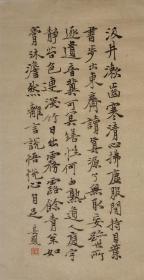 汲井漱齒寒清心拂塵服閒持貝葉
書步出東齋讀真源了無取妄跡世所
逐遺言冀可冥繕性何由熟道人庭宇
靜苔色連深竹日出霧露餘青松如
膏沐澹然離言說悟悅心自足